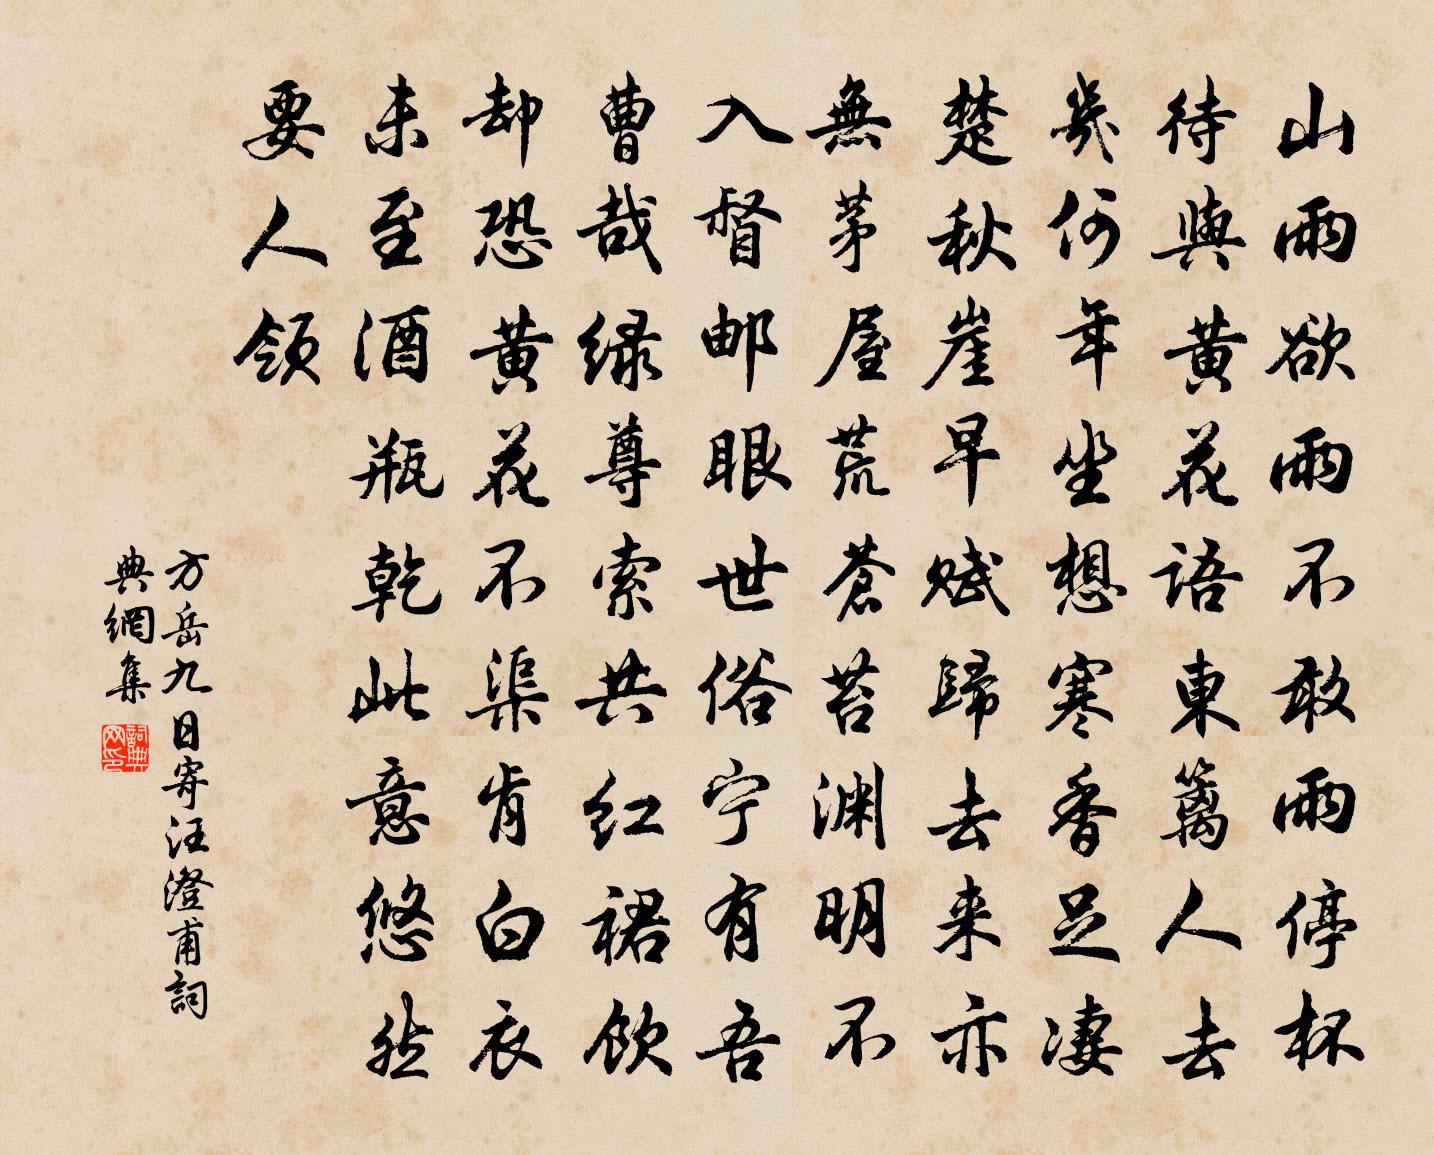 山雨欲雨不敢雨停杯
待與黃花語東籬人去
幾何年坐想寒香足淒
楚秋崖早賦歸去来亦
無茅屋荒蒼苔淵明不
入督邮眼世俗宁有吾
曹哉绿尊索共红裙飲
却恐黃花不渠肯白衣
未至酒瓶乾此意悠然
要人領
方岳九日寄汪澄甫詞
典網集
詞典網印